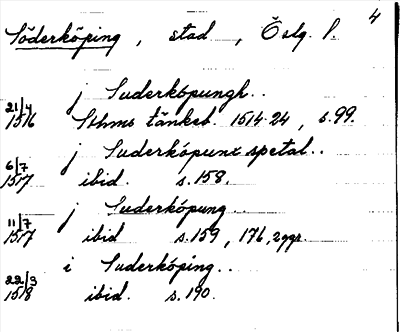 4
Söderköping, stad, Östg. l.
j Suderköpungh..
21/4 1516 Sthms tänkeb. 1514-24, s.99.
j Suderköpunx spetal..
6/7 1517 ibid. s.158.
j Suderköpung..
11/7 1517 ibid s.159, 176, 2ggr.
i Suderköping..
22/3 1518 ibid. s.190.